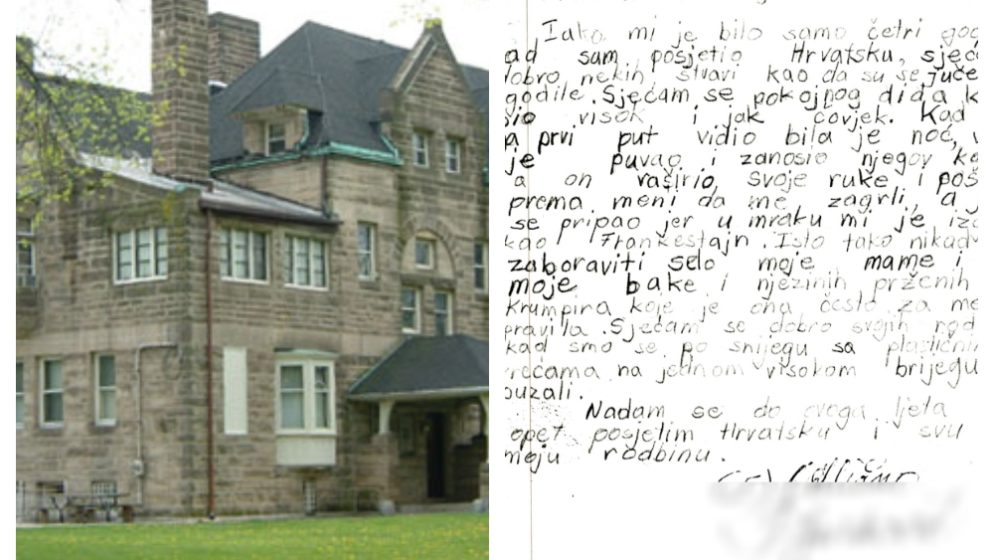 Iako mi je bilo samo četri
ad sam posjetio Hrvatsku, sjeć
dobro nekih stvari kao da su se juče
godile. Sjećam se pokojnog dida k
bio visok i jak čovjek. Kad
a prvi put vidio bila je noć, v
je puvao i zanosio njegov ka
a on raširio svoje ruke i poš
prema meni da me zagrli, a
se pripao jer u mraku mi je izg
kao Frankestajn. Isto tako nikad
zaboraviti selo moje mame i
moje bake i njezinih prženih
krumpira koje je ona često za me
pravila. Sjećam se dobro svojih rođ
kad smo se po snijegu sa plastičnim
vrećama na jednom visokom brijegu
puzali.
Nadam se do ovoga ljeta
opet posjetim Hrvatsku i svu
moju rodbinu.